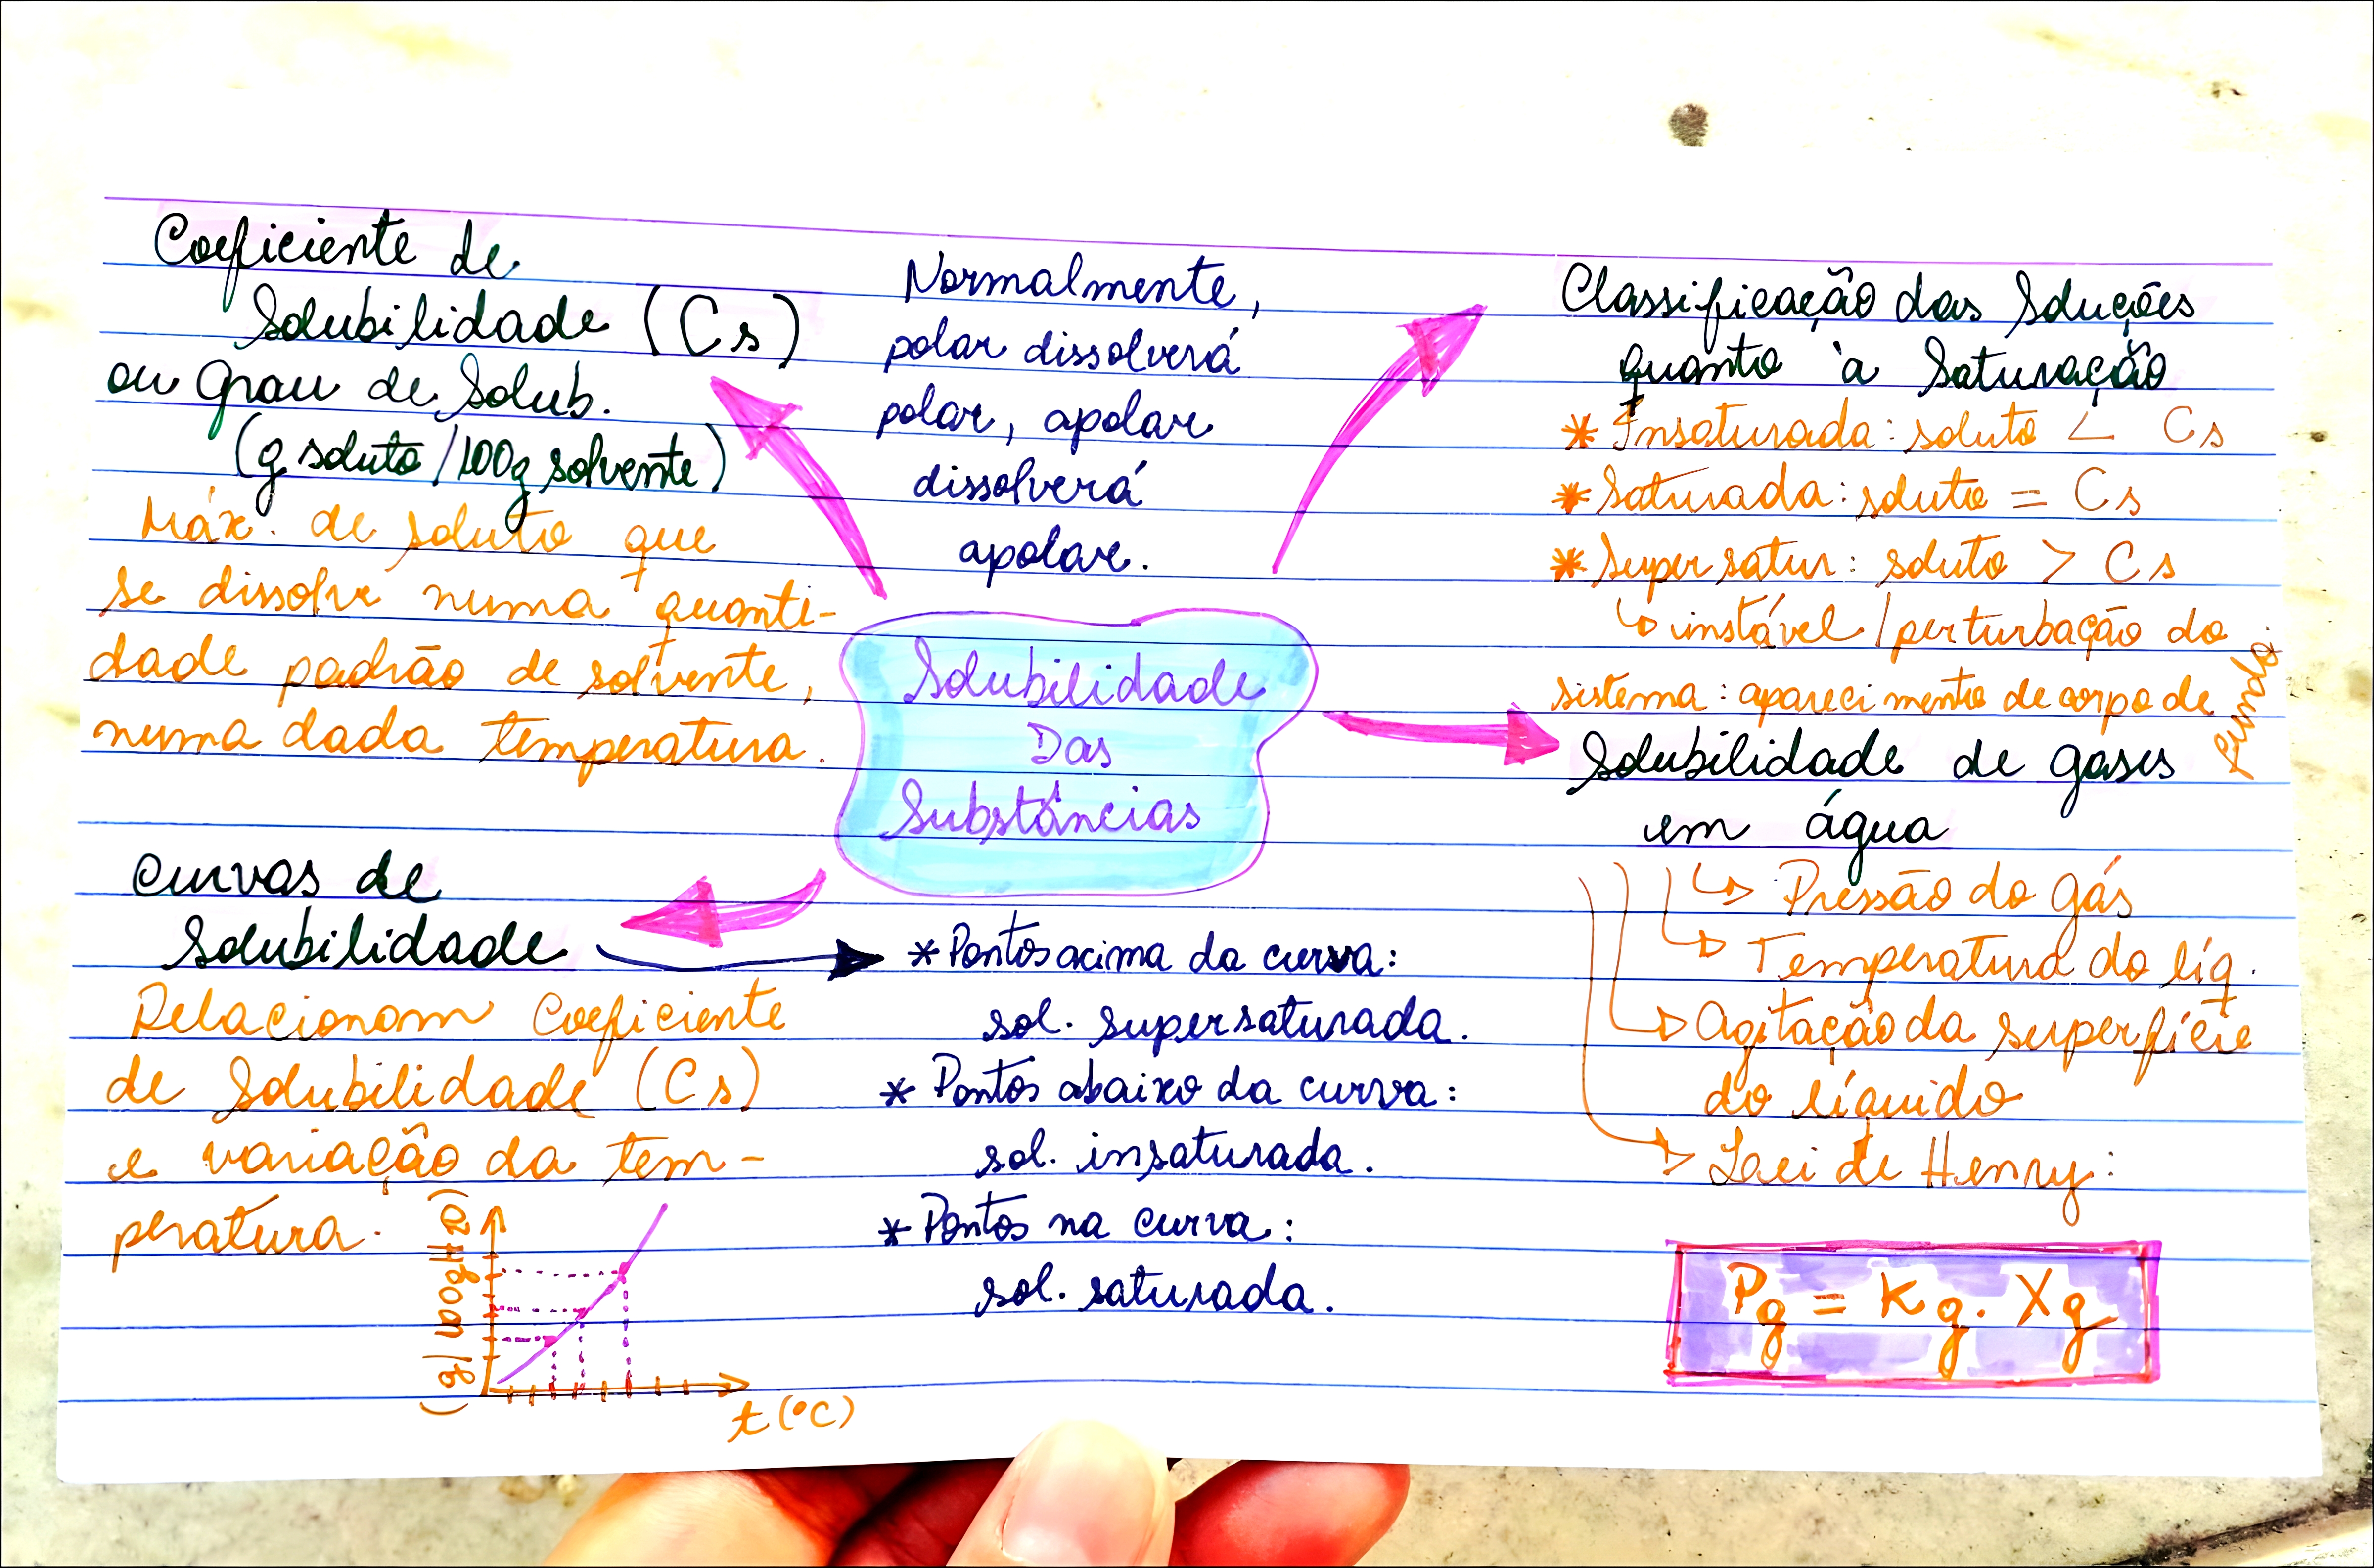 Coeficiente de
Solubilidade (Cs)
ou Grau de Solub.
(g soluto/100g solvente)
Máx. de soluto que
se dissolve numa quanti-
dade padrão de solvente,
numa dada temperatura.
Normalmente,
polar dissolverá
polar, apolar
dissolverá
apolar.
Classificação das Soluções
quanto à Saturação
* Insaturada: soluto < Cs
* Saturada: soluto = Cs
* Supersatur: soluto > Cs
↳ instável/perturbação do
sistema: aparecimento de corpo de
fundo.
Solubilidade
Das
Substâncias
Solubilidade de gases
em água
↳ Pressão do Gás
↳ Temperatura do líq.
↳ Agitação da superfície
do líquido
↳ Lei de Henry:
Pg = Kg. Xg
Curvas de
Solubilidade
Relacionam Coeficiente
de Solubilidade (Cs)
e variação da tem-
peratura.
(g/100gH2O)
t(°C)
* Pontos acima da curva:
sol. supersaturada.
* Pontos abaixo da curva:
sol. insaturada.
* Pontos na curva:
sol. saturada.